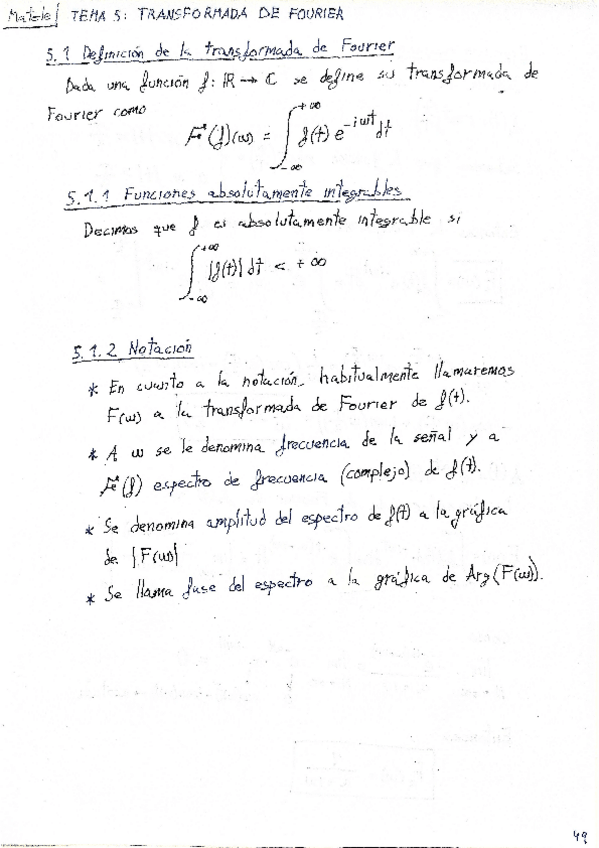 Matele| TEMA 5: TRANSFORMADA DE FOURIER
5.1 Definición de la transformada de Fourier
Dada una función f: ℝ → ℂ se define su transformada de
Fourier como
F(f)(ω) = ∫_{-∞}^{+∞} f(t) e^{-iωt} dt
5.1.1 Funciones absolutamente integrables
Decimos que f es absolutamente integrable si
∫_{-∞}^{+∞} |f(t)| dt < +∞
5.1.2 Notación
* En cuanto a la notación, habitualmente llamaremos
F(ω) a la transformada de Fourier de f(t).
* A ω se le denomina frecuencia de la señal y a
F(f) espectro de frecuencia (complejo) de f(t).
* Se denomina amplitud del espectro de f(t) a la gráfica
de |F(ω)|
* Se llama fase del espectro a la gráfica de Arg(F(ω)).
49